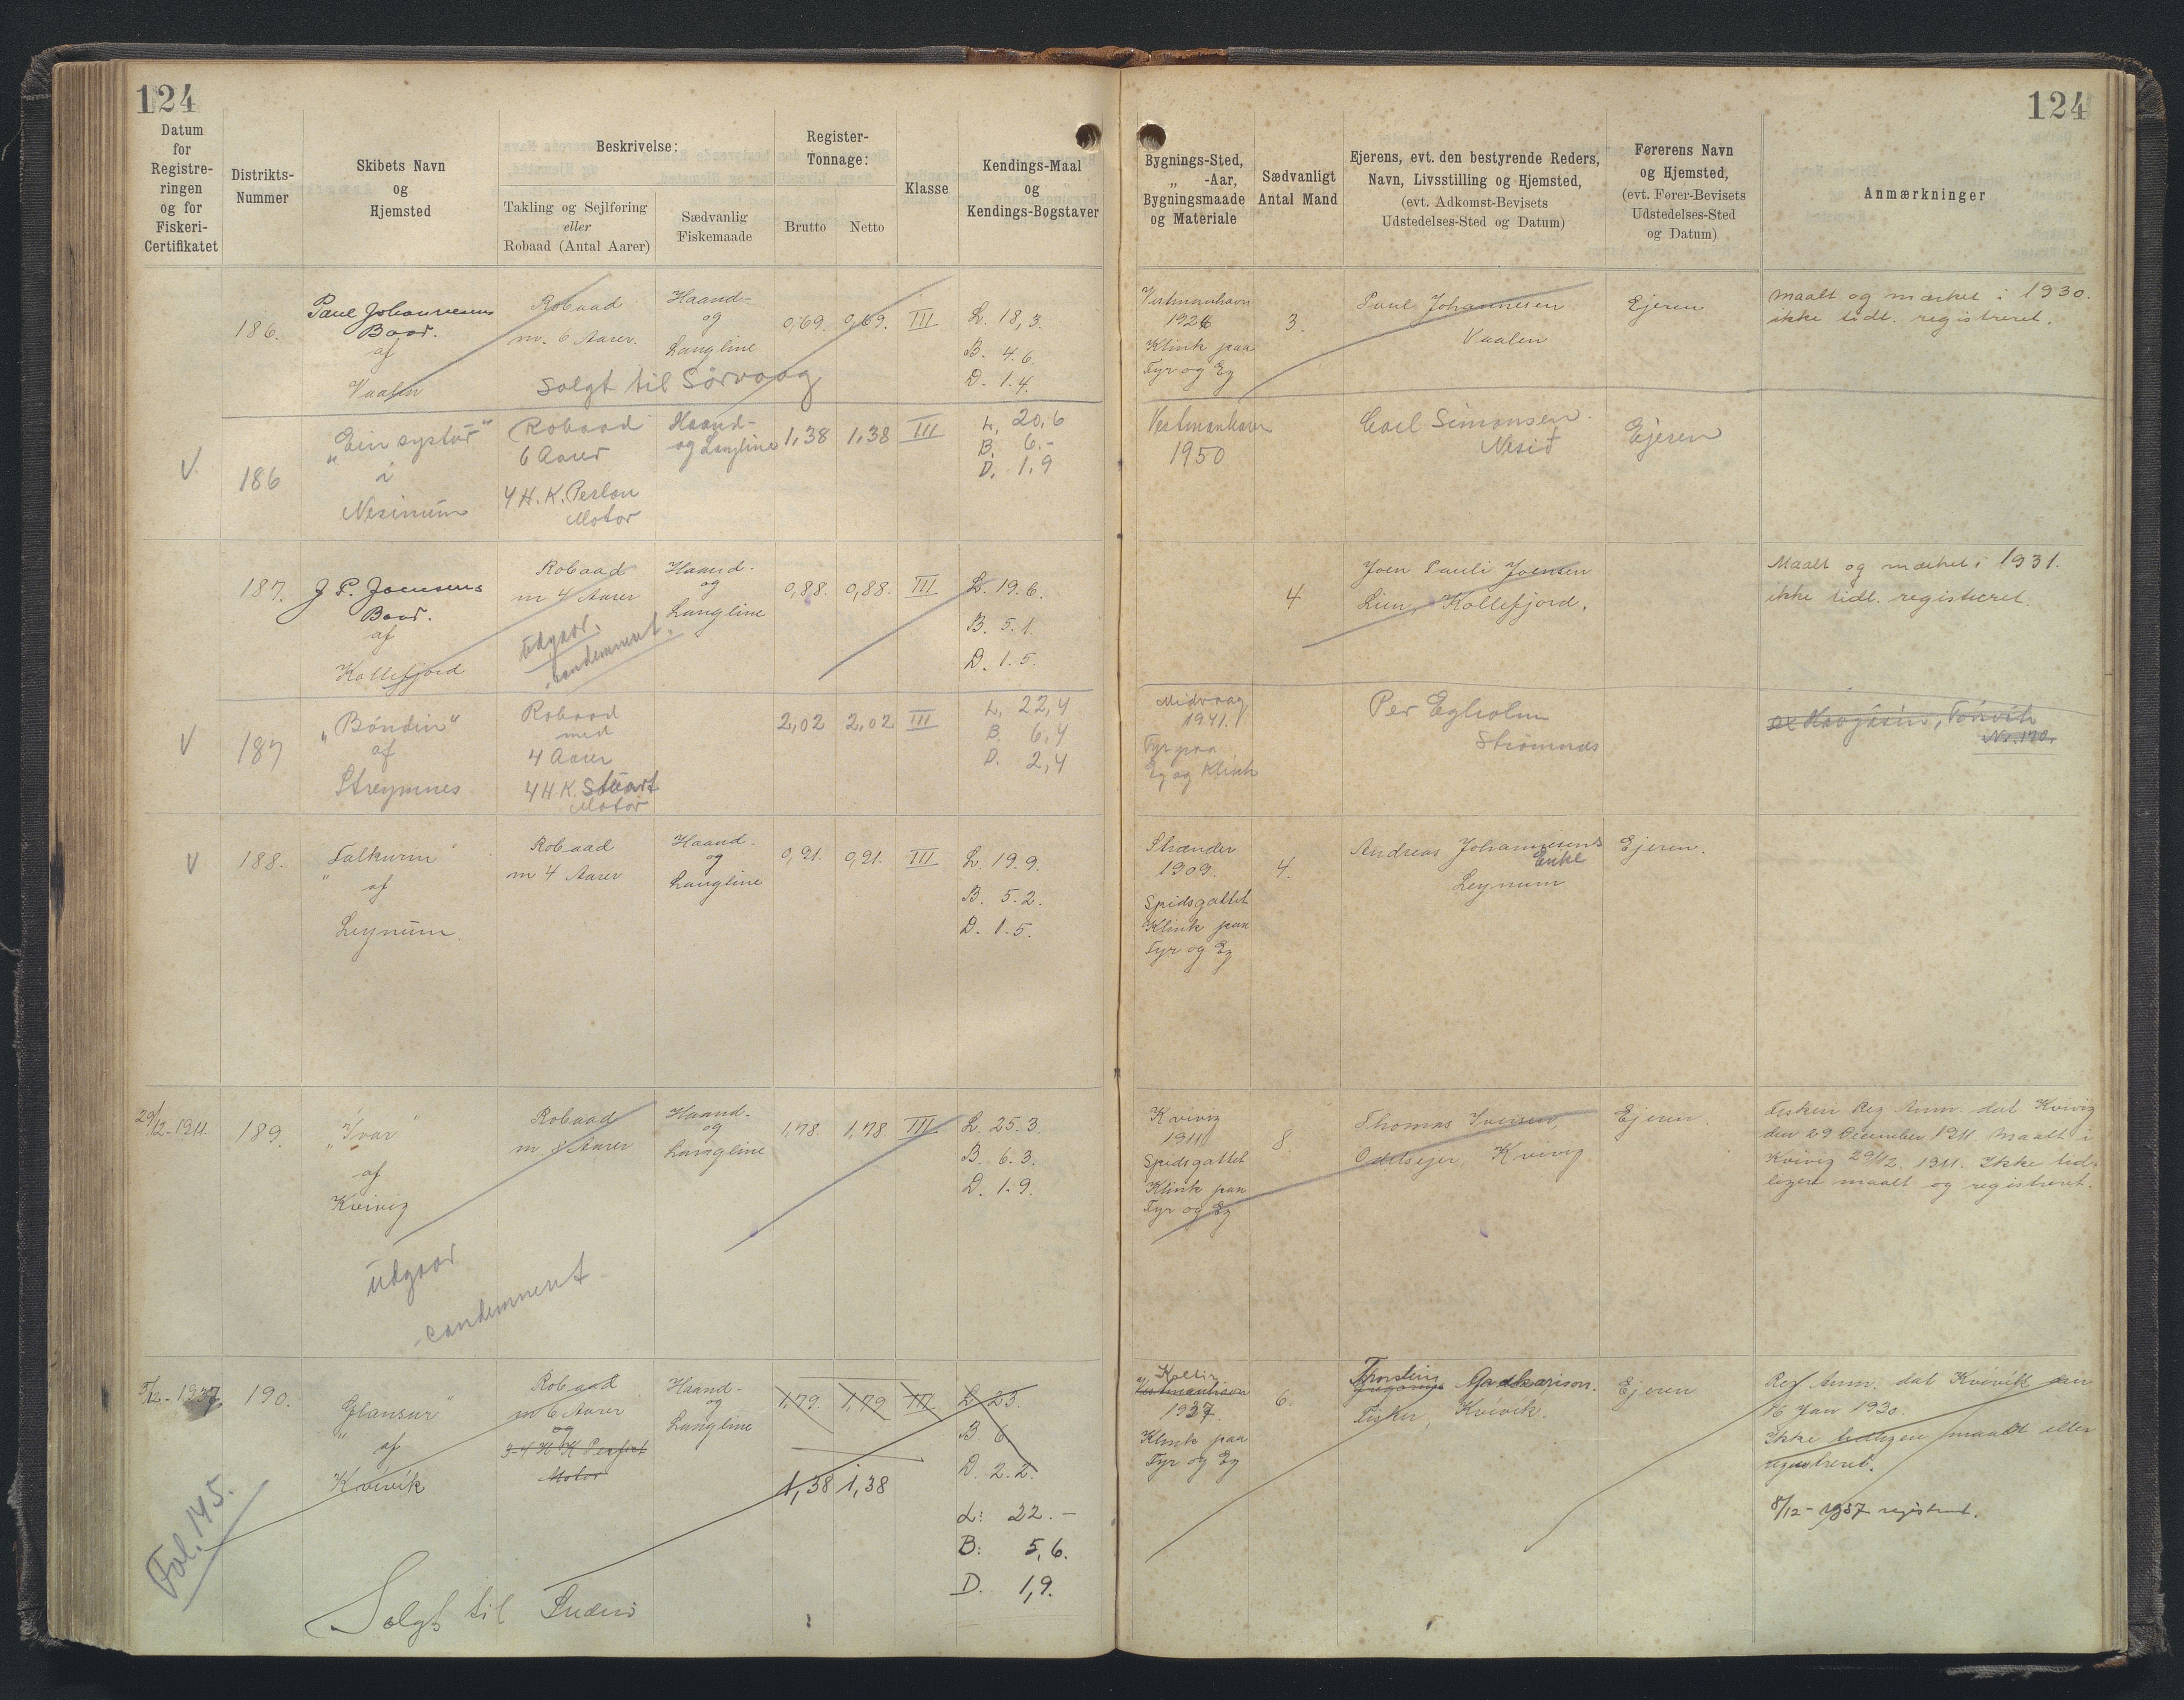 124
124
Datum
for
Registre-
ringen
og for
Fiskeri-
Certifikatet
Distrikts-
Nummer
Skibets Navn
og
Hjemsted
Beskrivelse:
Takling og Sejlføring
eller
Robaad (Antal Aarer)
Sædvanlig
Fiskemaade
Register-
Tonnage:
Brutto
Netto
Klasse
Kendings-Maal
og
Kendings-Bogstaver
Bygnings-Sted,
„ -Aar,
Bygningsmaade
og Materiale
Sædvanligt
Antal Mand
Ejerens, evt. den bestyrende Reders,
Navn, Livsstilling og Hjemsted,
(evt. Adkomst-Bevisets
Udstedelses-Sted og Datum)
Førerens Navn
og Hjemsted,
(evt. Fører-Bevisets
Udstedelses-Sted
og Datum)
Anmærkninger
186.
Paul Johannesens
Baad.
af
Vaalen
Robaad
m. 6 Aarer.
Solgt til Sörvaag
Haand-
og
Langline
0,69.
0,69.
III
L. 18,3.
B. 4.6.
D. 1.4.
Vestmanhavn
1926
Klink paa
Fyr og Eg
3.
Paul Johannesen
Vaalen
Ejeren
Maalt og mærket i 1930.
ikke tidl. registreret.
V
186
„Ein systur"
i
Nesinum
Robaad
6 Aarer
4 H.K. Perlon
Motor
Haand-
og Langline
1,38
1,38
III
L. 20,6
B. 6.-
D. 1,9
Vestmanhavn
1950
Carl Simonsen
Nesið
Ejeren
187.
J P. Joensens
Baad.
af
Kollefjord
Robaad
m 4 Aarer
Udgaar.
condemnent.
Haand-
og
Langline
0,88.
0,88.
III
L. 19.6.
B. 5.1.
D. 1.5.
4
Joen Pauli Joensen
Lien, Kollefjord.
Maalt og mærket i 1931.
ikke tidl. registreret.
V
187
„Bóndin"
af
Streymnes
Robaad
med
4 Aarer
4 H K. Stuart
Motor
2,02
2,02
III
L. 22,4
B. 6,4
D. 2,4
Midvaag
1941.
Fyr paa
Eg og Klink
Per Egholm
Strömnæs
Nr. 170.
V
188.
„Falkurin"
af
Leynum.
Robaad
m 4 Aarer
Haand-
og
Langline
0,91.
0,91.
III
L. 19.9.
B. 5.2.
D. 1.5.
1909.
Spidsgattet
Klink paa
Fyr og Eg
4.
Andreas Johannesens
Enke
Leynum
Ejeren.
29/12-1911.
189.
„Ivar"
af
Kvivig
Udgaar
condemnent
Robaad
m. 8 Aarer
Haand-
og
Langline
1,78.
1,78.
III
L. 25.3.
B. 6.3.
D. 1.9.
Kvivig
1911
Spidsgattet
Klink paa
Fyr og Eg
8.
Thomas Iversen,
Odelsejer, Kvivig
Ejeren.
Fiskeri Reg Anm. dat Kvivig
den 29 December 1911. Maalt i
Kvivig 29/12. 1911. Ikke tid-
ligere maalt og registreret.
8/12-1937.
190.
„Glansur"
af
Kvívík
Fol. 145.
Robaad
m 6 Aarer
og
3-4 H K Perfect
Motor
Haand-
og
Langline
1,79.
1,79
III
1,38
1,38
L 23.
B. 6
D. 2.2.
L: 22.-
B: 5,6.
D. 1,9.
Solgt til
Vestmanhavn
1937.
Klink paa
Fyr og Eg
6.
Fisker, Kvívík.
Ejeren
Reg Anm. dat Kvívík den
16 Jan 1930.
Ikke tidligere maalt eller
registreret.
8/12-1937 registreret.